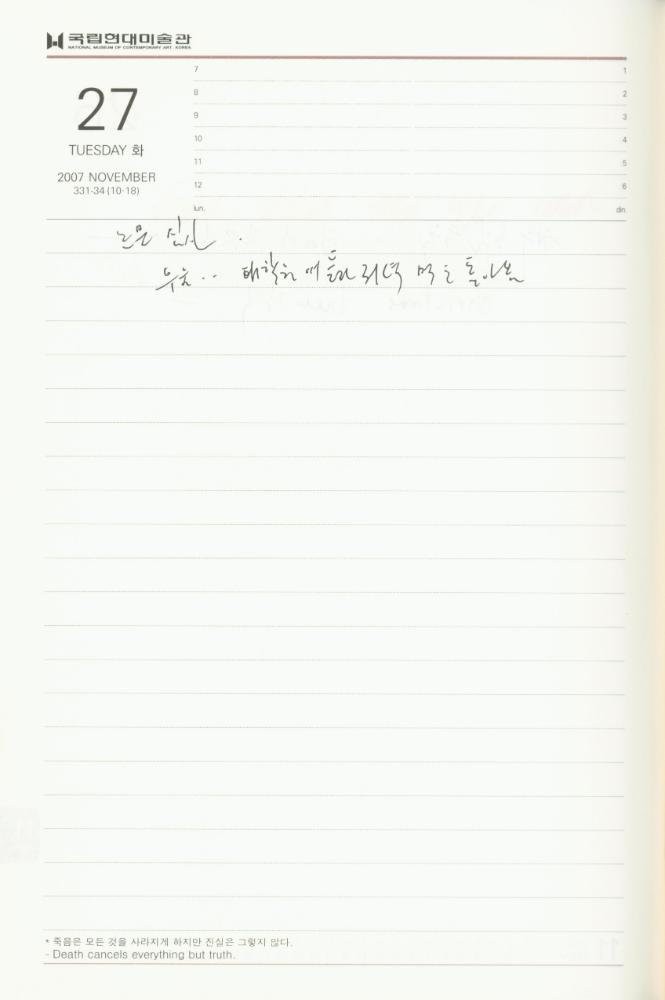 국립현대미술관
NATIONAL MUSEUM OF CONTEMPORARY ART, KOREA
27
TUESDAY 화
2007 NOVEMBER
331-34 (10·18)
7
8
9
10
11
12
lun.
1
2
3
4
5
6
din.
논문 심사 .
대학원 저녁 먹고 돌아봄
* 죽음은 모든 것을 사라지게 하지만 진실은 그렇지 않다.
- Death cancels everything but truth.